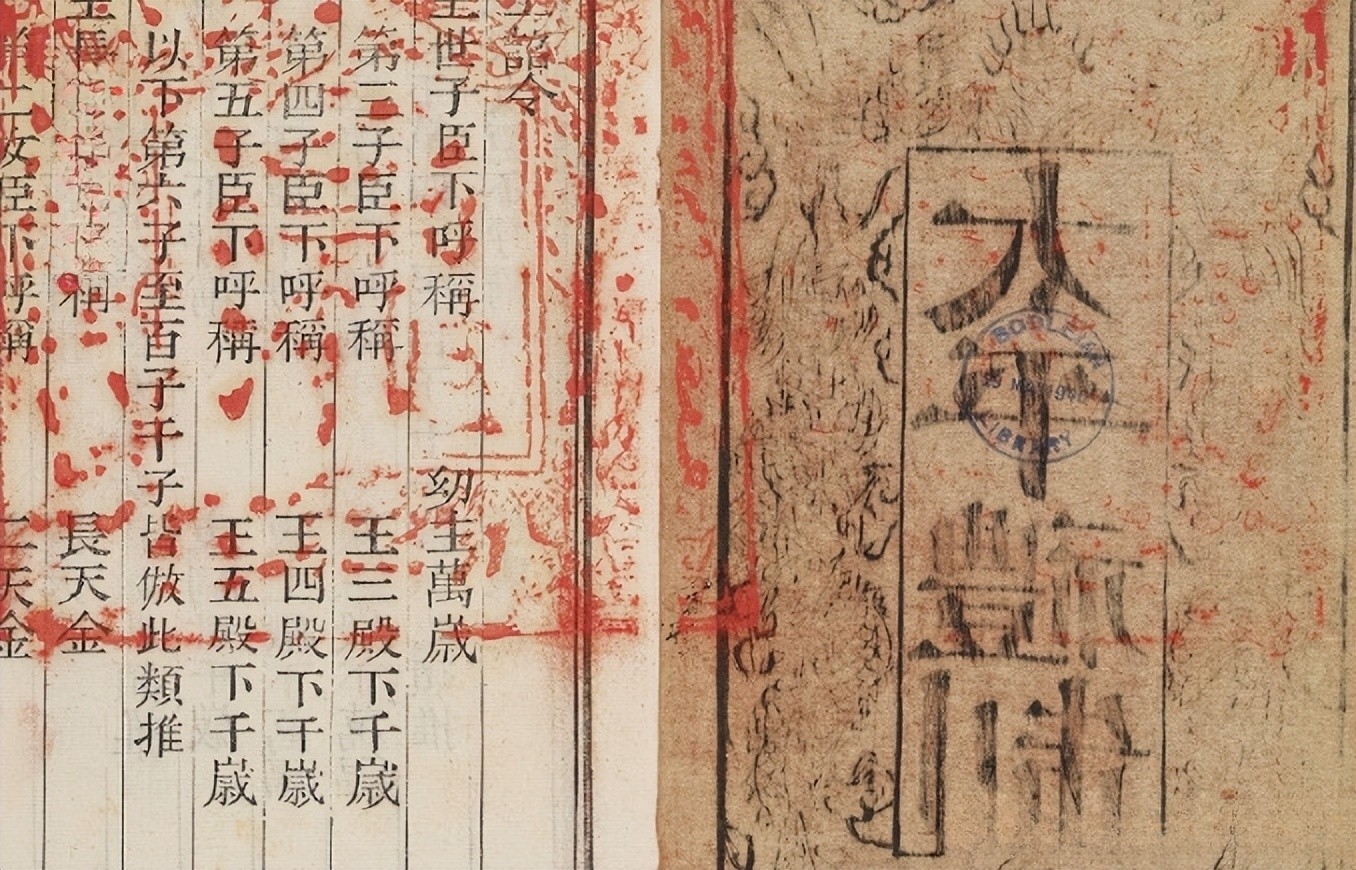 太平禮制
BODLEIAN
LIBRARY
詔令
世子臣下呼稱 幼主萬嵗
第三子臣下呼稱 王三殿下千嵗
第四子臣下呼稱 王四殿下千嵗
第五子臣下呼稱 王五殿下千嵗
以下第六子至百子千子皆倣此類推
長 稱 長天金
第二女臣下呼稱 二天金